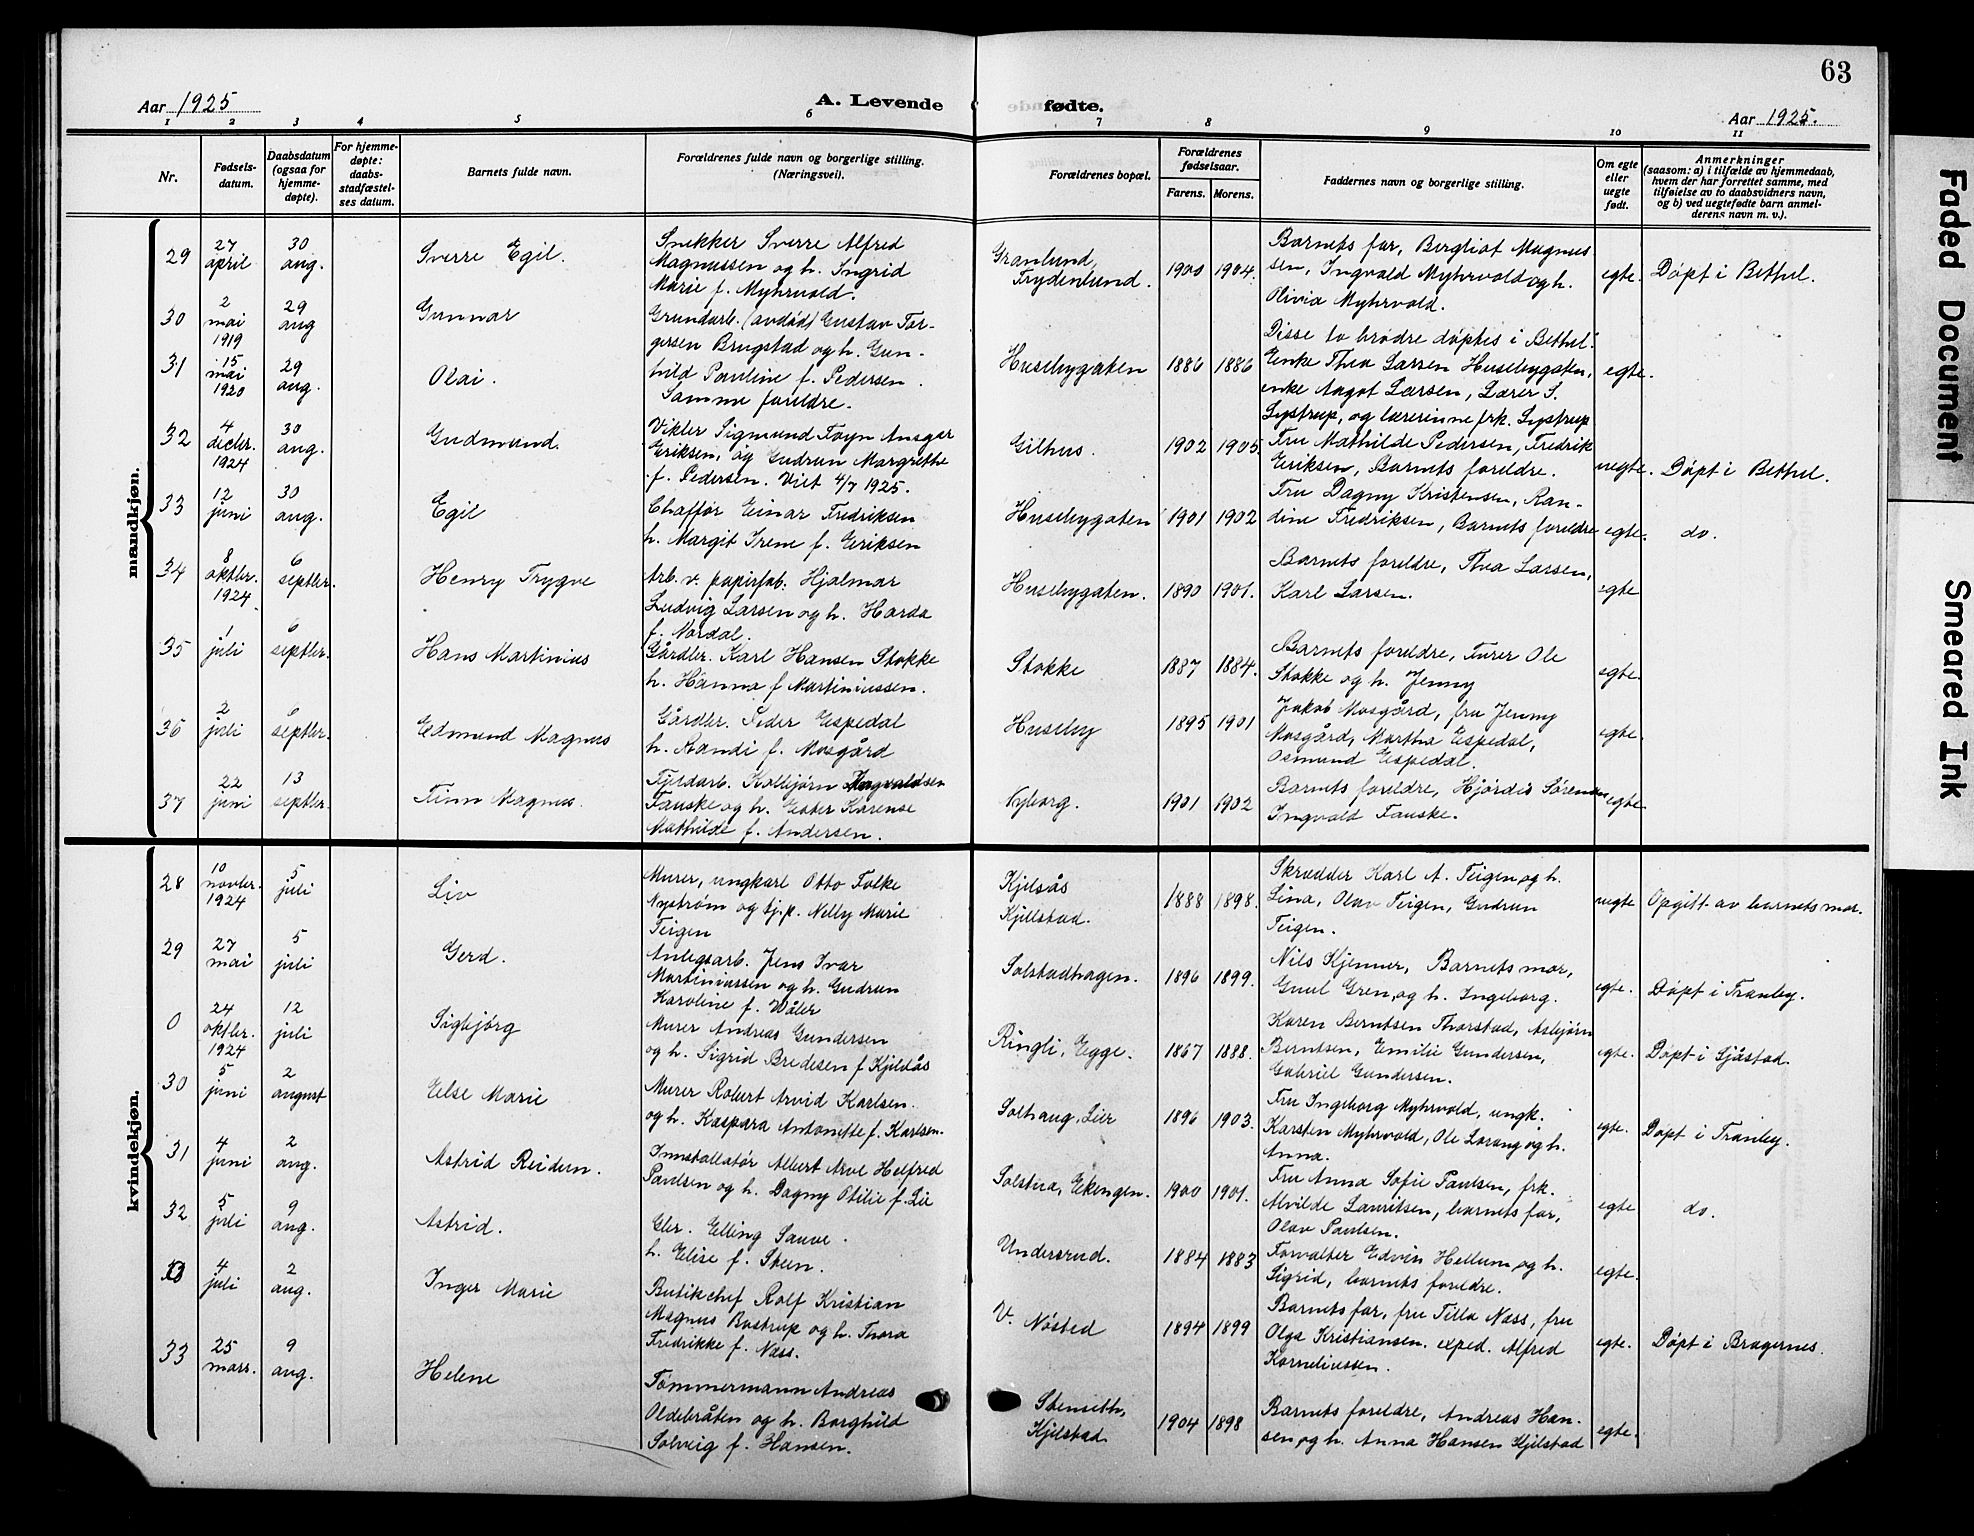 63
Aar 1925
A. Levende fødte.
Aar 1925.
1 2 3 4 5 6 7 8 9 10 11
Nr.
Fødsels-
datum.
Daabsdatum
(ogsaa for
hjemme-
døpte).
For hjemme-
døpte:
daabs-
stadfæstel-
ses datum.
Barnets fulde navn.
Forældrenes fulde navn og borgerlige stilling.
(Næringsvei).
Forældrenes bopæl.
Forældrenes
fødselsaar.
Farens. Morens.
Faddernes navn og borgerlige stilling.
Om egte
eller
uegte
født.
Anmerkninger
(saasom: a) i tilfælde av hjemmedaab,
hvem der har forrettet samme, med
tilføielse av to daabsvidners navn,
og b) ved uegtefødte barn anmel-
derens navn m. v.).
mandkjøn.
29
27
april
30
aug.
Sverre Egil.
Snekker Sverre Alfred
Magnussen og h. Ingrid
Marie f. Myhrvold.
Granlund,
Frydenlund.
1900 1904.
Barnets far, Bergliot Magnus
sen, Ingvald Myhrvold og h.
Olivia Myhrvold.
egte.
Døpt i Bethel.
30
2
mai
1919
29
aug
Gunnar
Grundarb. (avdød) Gustav Tor-
gersen Brugstad og h. Gun-
hild Pauline f. Pedersen.
31
15
mai
1920
29
aug.
Olai.
Samme foreldre.
Husebygaten
1886 1886
Disse to brødre døptes i Bethel:
Enke Thea Larsen Husebygaten,
enke Aagot Larsen, Lærer S.
Lystrup, og lærerinne frk. Lystrup
egte.
32
4
decbr.
1924
30
aug.
Gudmund.
Vikler Sigmund Foyn Ansgar
Eriksen, og Gudrun Margrethe
f. Pedersen. Viet 4/7 1925.
Gilhus.
1902 1905.
Fru Mathilde Pedersen, Fredrik
Eriksen, Barnets foreldre.
uegte.
Døpt i Bethel.
33
12
juni
30
aug.
Egil
Chaffør Einar Fredriksen
h. Margit Irene f. Eriksen
Husebygaten
1901 1902
Fru Dagny Kristensen, Ran-
dine Fredriksen, Barnets foreldre
egte.
do.
34
8
oktbr.
1924
6
septbr.
Henry Trygve
Arb. v. papirfab. Hjalmar
Ludvig Larsen og h. Harda
f. Nordal.
Husebygaten.
1890 1901.
Barnets foreldre, Thea Larsen,
Karl Larsen.
egte
35
1
juli
6
septbr.
Hans Martinius
Gårdbr. Karl Hansen Stokke
h. Hanna f Martiniussen.
Stokke
1887 1884.
Barnets foreldre, Furer Ole
Stokke og h. Jenny
egte.
36
2
juli
6
septbr.
Edmund Magnus
Gårdbr. Peder Espedal
h. Randi f. Mosgård
Huseby
1895 1901
Jakob Mosgård, fru Jenny
Mosgård, Martha Espedal,
Osmund Espedal.
egte.
37
22
juni
13
septbr.
Finn Magnus.
Fjeldarb. Kolbjørn Ingvaldsen
Fauske og h. Ester Karense
Mathilde f. Andersen.
Nyborg.
1901 1902
Barnets foreldre, Hjørdis Sørensen
Ingvald Fauske.
egte
kvindekjøn.
28
10
novbr.
1924
5
juli
Liv
Murer, ungkarl Otto Folke
Nystrøm og tj.p. Nelly Marie
Teigen
Kjelsås
Kjellstad.
1888 1898.
Skredder Karl A. Teigen, og h.
Lina, Olav Teigen, Gudrun
Teigen.
uegte
Opgitt av barnets mor.
29
27
mai
5
juli
Gerd.
Anlegsarb. Jens Ivar
Martiniussen og h. Gudrun
Karoline f. Wåler
Solstadhagen.
1896 1899.
Nils Kjenner, Barnets mor,
Gunl Gren, og h. Ingeborg.
egte.
Døpt i Tranby.
0
24
oktbr.
1924
12
juli
Sigbjørg
Murer Andreas Gundersen
og h. Sigrid Bredesen f Kjelsås
Ringli, Egge.
1867 1888.
Karen Berntsen Thorstad, Asbjørn
Berntsen, Emilie Gundersen,
Gabriel Gundersen.
egte.
Døpt i Sjåstad.
30
5
juni
2
august
Else Marie
Murer Robert Arvid Karlsen.
og h. Kaspara Antonette f. Karlsen.
Solhaug, Lier
1896 1903.
Fru Ingeborg Myhrvold, ungk.
Karsten Myhrvold, Ole Lorang og h.
Anna.
egte.
Døpt i Tranby.
31
4
juni
2
aug.
Astrid Reidun.
Innstallatør Albert Arve Helfred
Paulsen og h. Dagny Otilie f. Lie
Solstua, Ekengen.
1900 1901.
Fru Anna Sofie Paulsen, frk.
Alvilde Lauritsen, barnets far,
Olav Paulsen.
egte
do.
32
5
juli
9
aug.
Astrid.
Gbr. Elling Sauve.
h. Elise f. Steen.
Undersrud.
1884 1883
Forvalter Edvin Hellum, og h.
Sigrid, barnets foreldre.
egte.
4
juli
2
aug.
Inger Marie
Butikchef Rolf Kristian
Magnus Bostrup og h. Thora
Fredrikke f. Næss.
V. Nøsted
1894 1899
Barnets far, fru Tilla Næss, fru
Olga Kristiansen. exped. Alfred
Korneliussen.
egte.
Døpt i Bragernes.
33
25
mars.
9
aug.
Helene
Tømmermann Andreas
Oldebråten og h. Borghild
Solveig f. Hansen.
Stenseth,
Kjelstad
1904 1898
Barnets foreldre, Andreas Han-
sen, og h. Anna Hansen Kjelstad
egte.
Faded Document
Smeared Ink